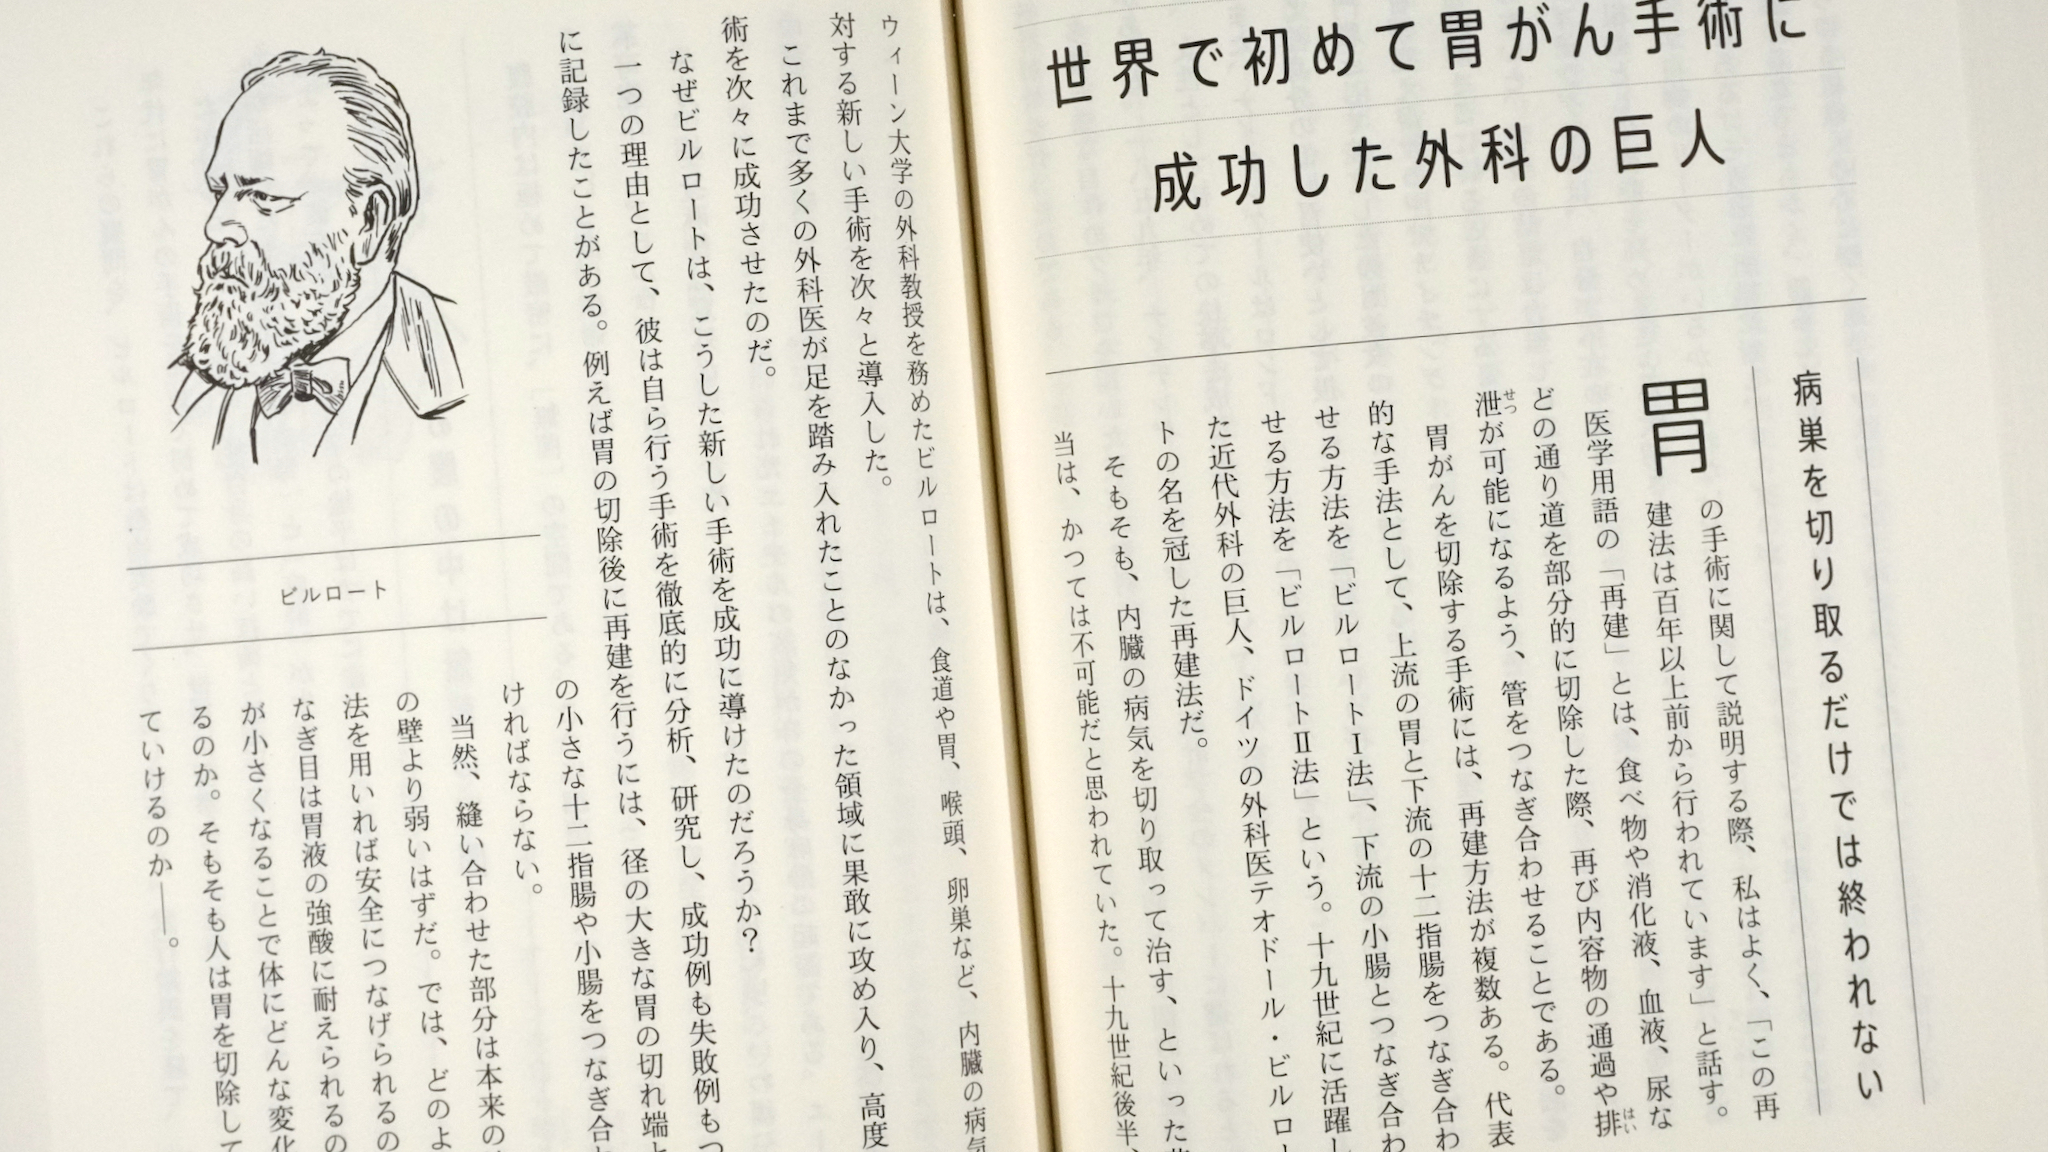 世界で初めて胃がん手術に
成功した外科の巨人
病巣を切り取るだけでは終われない
胃の手術に関して説明する際、私はよく、「この再
建法は百年以上前から行われています」と話す。
医学用語の「再建」とは、食べ物や消化液、血液、尿な
どの通り道を部分的に切除した際、再び内容物の通過や排
泄が可能になるよう、管をつなぎ合わせることである。
胃がんを切除する手術には、再建方法が複数ある。代表
的な手法として、上流の胃と下流の十二指腸をつなぎ合わ
せる方法を「ビルロートⅠ法」、下流の小腸とつなぎ合わ
せる方法を「ビルロートⅡ法」という。十九世紀に活躍し
た近代外科の巨人、ドイツの外科医テオドール・ビルロー
トの名を冠した再建法だ。
そもそも、内臓の病気を切り取って治す、といった
当は、かつては不可能だと思われていた。十九世紀後半、
ウィーン大学の外科教授を務めたビルロートは、食道や胃、喉頭、卵巣など、内臓の病気
対する新しい手術を次々と導入した。
これまで多くの外科医が足を踏み入れたことのなかった領域に果敢に攻め入り、高度
術を次々に成功させたのだ。
なぜビルロートは、こうした新しい手術を成功に導けたのだろうか？
一つの理由として、彼は自ら行う手術を徹底的に分析、研究し、成功例も失敗例もつ
に記録したことがある。例えば胃の切除後に再建を行うには、径の大きな胃の切れ端と
の小さな十二指腸や小腸をつなぎ合わ
ければならない。
当然、縫い合わせた部分は本来の
の壁より弱いはずだ。では、どのよ
法を用いれば安全につなげられるの
なぎ目は胃液の強酸に耐えられるの
が小さくなることで体にどんな変化
るのか。そもそも人は胃を切除して
ていけるのか――。
ビルロート